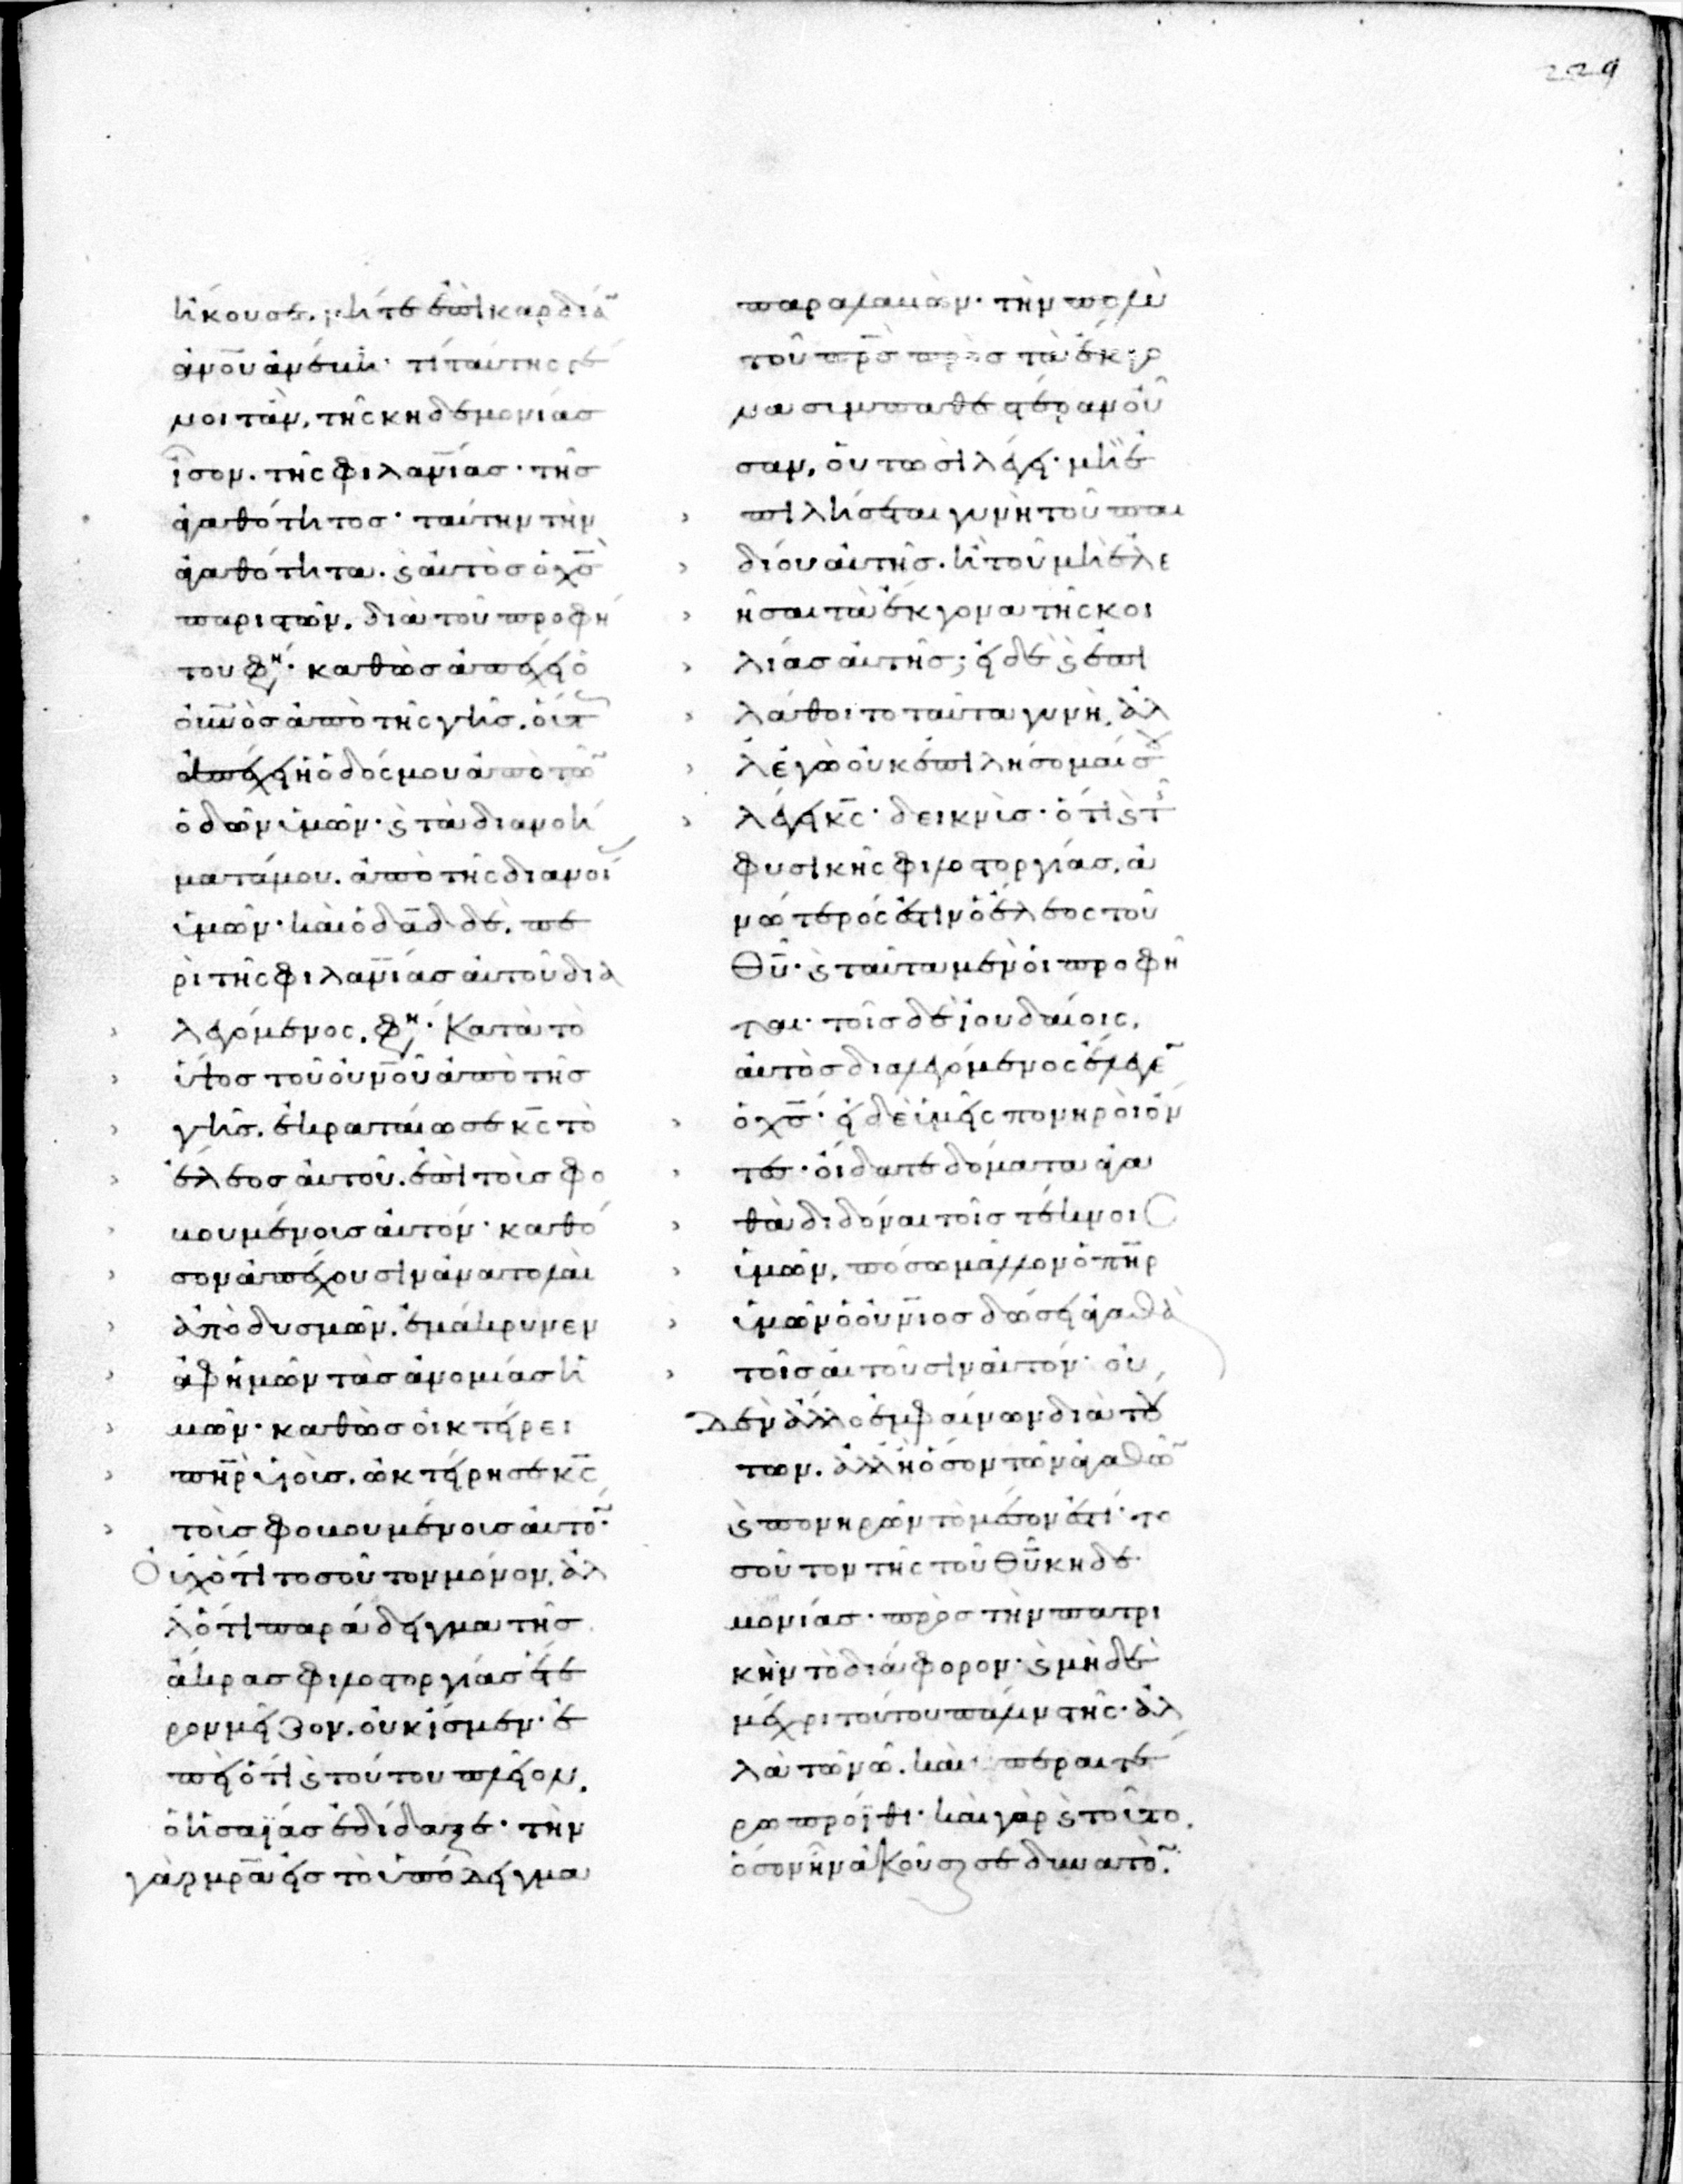 229
ἤκουσε. μήτε ἐπὶ καρδίαν
ἀνου ἀνέβη· τί ταύτης γέ
νοιτ' ἂν, τῆς κηδεμονίας
ἴσον. τῆς φιλανίας· τῆς
ἀγαθότητος· ταύτην τὴν
ἀγαθότητα. ϗ αὐτὸς ὁ χς
παριστῶν. διὰ τοῦ προφή
του φη· καθὼς ἀπέχει ὁ
οὐνὸς ἀπὸ τῆς γῆς. οὕτως
ἀπέχει ἡ ὁδός μου ἀπὸ τῶν
ὁδῶν ὑμῶν· ϗ τὰ διανοή
ματά μου. ἀπὸ τῆς διανοίας
ὑμῶν· καὶ ὁ δαδ δὲ. πε
ρὶ τῆς φιλανίας αὐτοῦ δια
λεγόμενος. φη· Κατὰ τὸ
ὕψος τοῦ οὐνοῦ ἀπὸ τῆς
γῆς. ἐκραταίωσε κς τὸ
ἔλεος αὐτοῦ. ἐπὶ τοὺς φο
βουμένους αὐτόν· καθό
σον ἀπέχουσιν ἀνατολαὶ
ἀπὸ δυσμῶν. ἐμάκρυνεν
ἀφ' ἡμῶν τὰς ἀνομίας ἡ
μῶν· καθὼς οἰκτείρει
πηρ υἱοὺς. ὠκτείρησε κς
τοὺς φοβουμένους αὐτόν·
Οὐχ ὅτι τοσοῦτον μόνον. ἀλ
λ' ὅτι παράδειγμα τῆς
ἄκρας φιλοστοργίας ἕτε
ρον μεῖζον. οὐκ ἴσμεν· ἐ
πεὶ ὅτι ϗ τούτου πλεῖον.
ὁ ἡσαΐας ἐδίδαξε· τὴν
γὰρ μρα εἰς τὸ ὑπόδειγμα
παραλαβὼν· τὴν πολὺ
τοῦ πρς πρὸς τὰ ἔκγο
να συμπαθεστέραν οὖ
σαν, οὕτωσὶ λέγει· μὴ ἐ
πιλήσεται γυνὴ τοῦ παι
δίου αὐτῆς. ἢ τοῦ μὴ ἐλε
ῆσαι τὰ ἔκγονα τῆς κοι
λίας αὐτῆς; εἰ δὲ ϗ ἐπι
λάθοιτο ταῦτα γυνή. ἀλ
λ' ἐγὼ οὐκ ἐπιλήσομαί σου
λέγει κς· δεικνὺς· ὅτι ϗ τῆς
φυσικῆς φιλοστοργίας. ἀ
νώτερός ἐστιν ὁ ἔλεος τοῦ
θυ· ϗ ταῦτα μὲν οἱ προφῆ
ται· τοῖς δὲ ἰουδαίοις.
αὐτὸς διαλεγόμενος ἔλεγεν
ὁ χς· εἰ δὲ ὑμεῖς πονηροὶ ὄν
τες· οἴδατε δόματα ἀγα
θὰ διδόναι τοῖς τέκνοις
ὑμῶν. πόσω μᾶλλον ὁ πηρ
ὑμῶν ὁ οὐνιος δώσει ἀγαθὰ
τοῖς αἰτοῦσιν αὐτόν· οὐ
δὲν ἄλλο ἐμφαίνων διὰ τού
των. ἀλλ' ἢ ὅσον τῶν ἀγαθῶν
ϗ πονηρῶν τὸ μέσον ἐστί· το
σοῦτον τῆς τοῦ θυ κηδε
μονίας· πρὸς τὴν πατρι
κὴν τὸ διάφορον· ϗ μηδὲ
μέχρι τούτου πάλιν στῆς· ἀλ
λὰ τῶ νῶ. καὶ περαιτέ
ρω πρόϊθι· καὶ γὰρ ϗ τοῦτο.
ὅσον ἦν ἀκοῦσαί σε δυνατὸν.